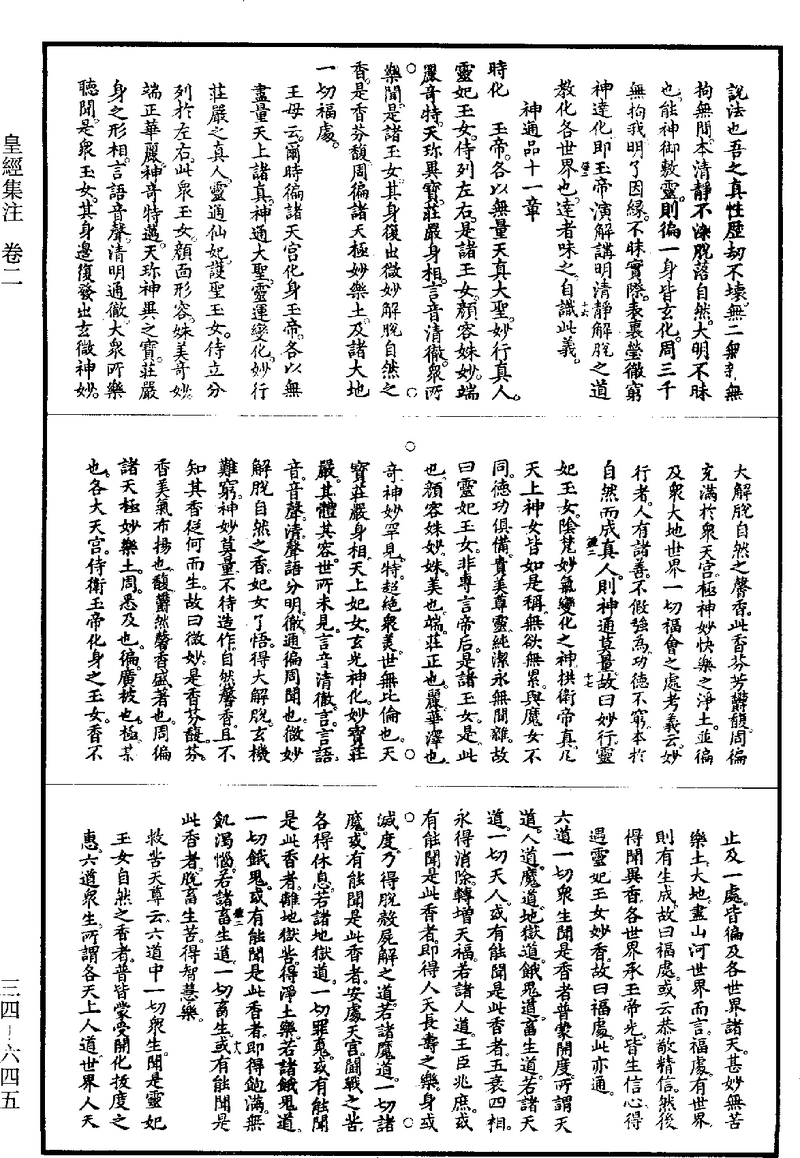 皇經集注　卷二
三四－六四五
說法也吾之真性歷劫不壞無二無雜無
拘無閒本清靜不染脫落自然大明不昧
也能神御敷靈則徧一身皆玄化周三千
無拘我明了因緣不昧實際表裏瑩徹窮
神達化即玉帝演解講明清靜解脫之道
教化各世界也達者味之自識此義
神通品十一章
時化　玉帝各以無量天真大聖妙行真人
靈妃玉女侍列左右是諸玉女顏容姝妙端
麗奇特天珎異寶莊嚴身相言音清徹衆所
樂聞是諸玉女其身復出微妙解脫自然之
香是香芬馥周徧諸天極妙樂土及諸大地
一切福處
王母云爾時徧諸天宮化身玉帝各以無
盡量天上諸真神通大聖靈運變化妙行
莊嚴之真人靈通仙妃護聖玉女侍立分
列於左右此衆玉女顏面形容姝美奇妙
端正華麗神奇特邁天珎神異之寶莊嚴
身之形相言語音聲清明通徹大衆所樂
聽聞是衆玉女其身邊復發出玄微神妙
大解脫自然之馨香此香芬芳欝馥周徧
充滿於衆天宮極神妙快樂之淨土並徧
及衆大地世界一切福會之處考義云妙
行者人有諸善不假強為功德不窮本於
自然而成真人則神通莫量故曰妙行靈
妃玉女陰梵妙氣變化之神拱衛帝真凡
天上神女皆如是稱無欲無累與魔女不
同德功俱備貴美尊靈純潔永無閒雜故
曰靈妃玉女非專言帝后是諸玉女是此
也顏容姝妙姝美也端莊正也麗華澤也
奇神妙罕見特超絕衆美世無比倫也天
寶莊嚴身相天上妃女玄光神化妙寶莊
嚴其體其容世所未見言音清徹言言語
音音聲清聲語分明徹通徧周聞也微妙
解脫自然之香妃女了悟得大解脫玄機
難窮神妙莫量不待造作自然馨香且不
知其香從何而生故曰微妙是香芬馥芬
香美氣布揚也馥欝然馨香盛著也周徧
諸天極妙樂土周悉及也徧廣被也極某
也各大天宮侍衛玉帝化身之玉女香不
止及一處皆徧及各世界諸天甚妙無苦
樂土大地盡山河世界而言福處有世界
則有生成故曰福處或云恭敬精信然後
得聞異香各世界承玉帝光皆生信心得
遇靈妃玉女妙香故曰福處此亦通
六道一切衆生聞是香者普蒙開度所謂天
道人道魔道地獄道餓鬼道畜生道若諸天
道一切天人或有能聞是此香者五衰四相
永得消除轉增天福若諸人道王臣兆庶或
有能聞是此香者即得人天長壽之樂身或
滅度乃得脫殺屍解之道若諸魔道一切諸
魔或有能聞是此香者安處天宮鬪戰之苦
各得休息若諸地獄道一切罪䰟或有能聞
是此香者離地獄苦得淨土樂若諸餓鬼道
一切餓鬼或有能聞是此香者即得飽滿無
飢渴惱若諸畜生道一切畜生或有能聞是
此香者脫畜生苦得智慧樂
救苦天尊云六道中一切衆生聞是靈妃
玉女自然之香者普皆蒙受開化拔度之
惠六道衆生所謂各天上人道世界人天